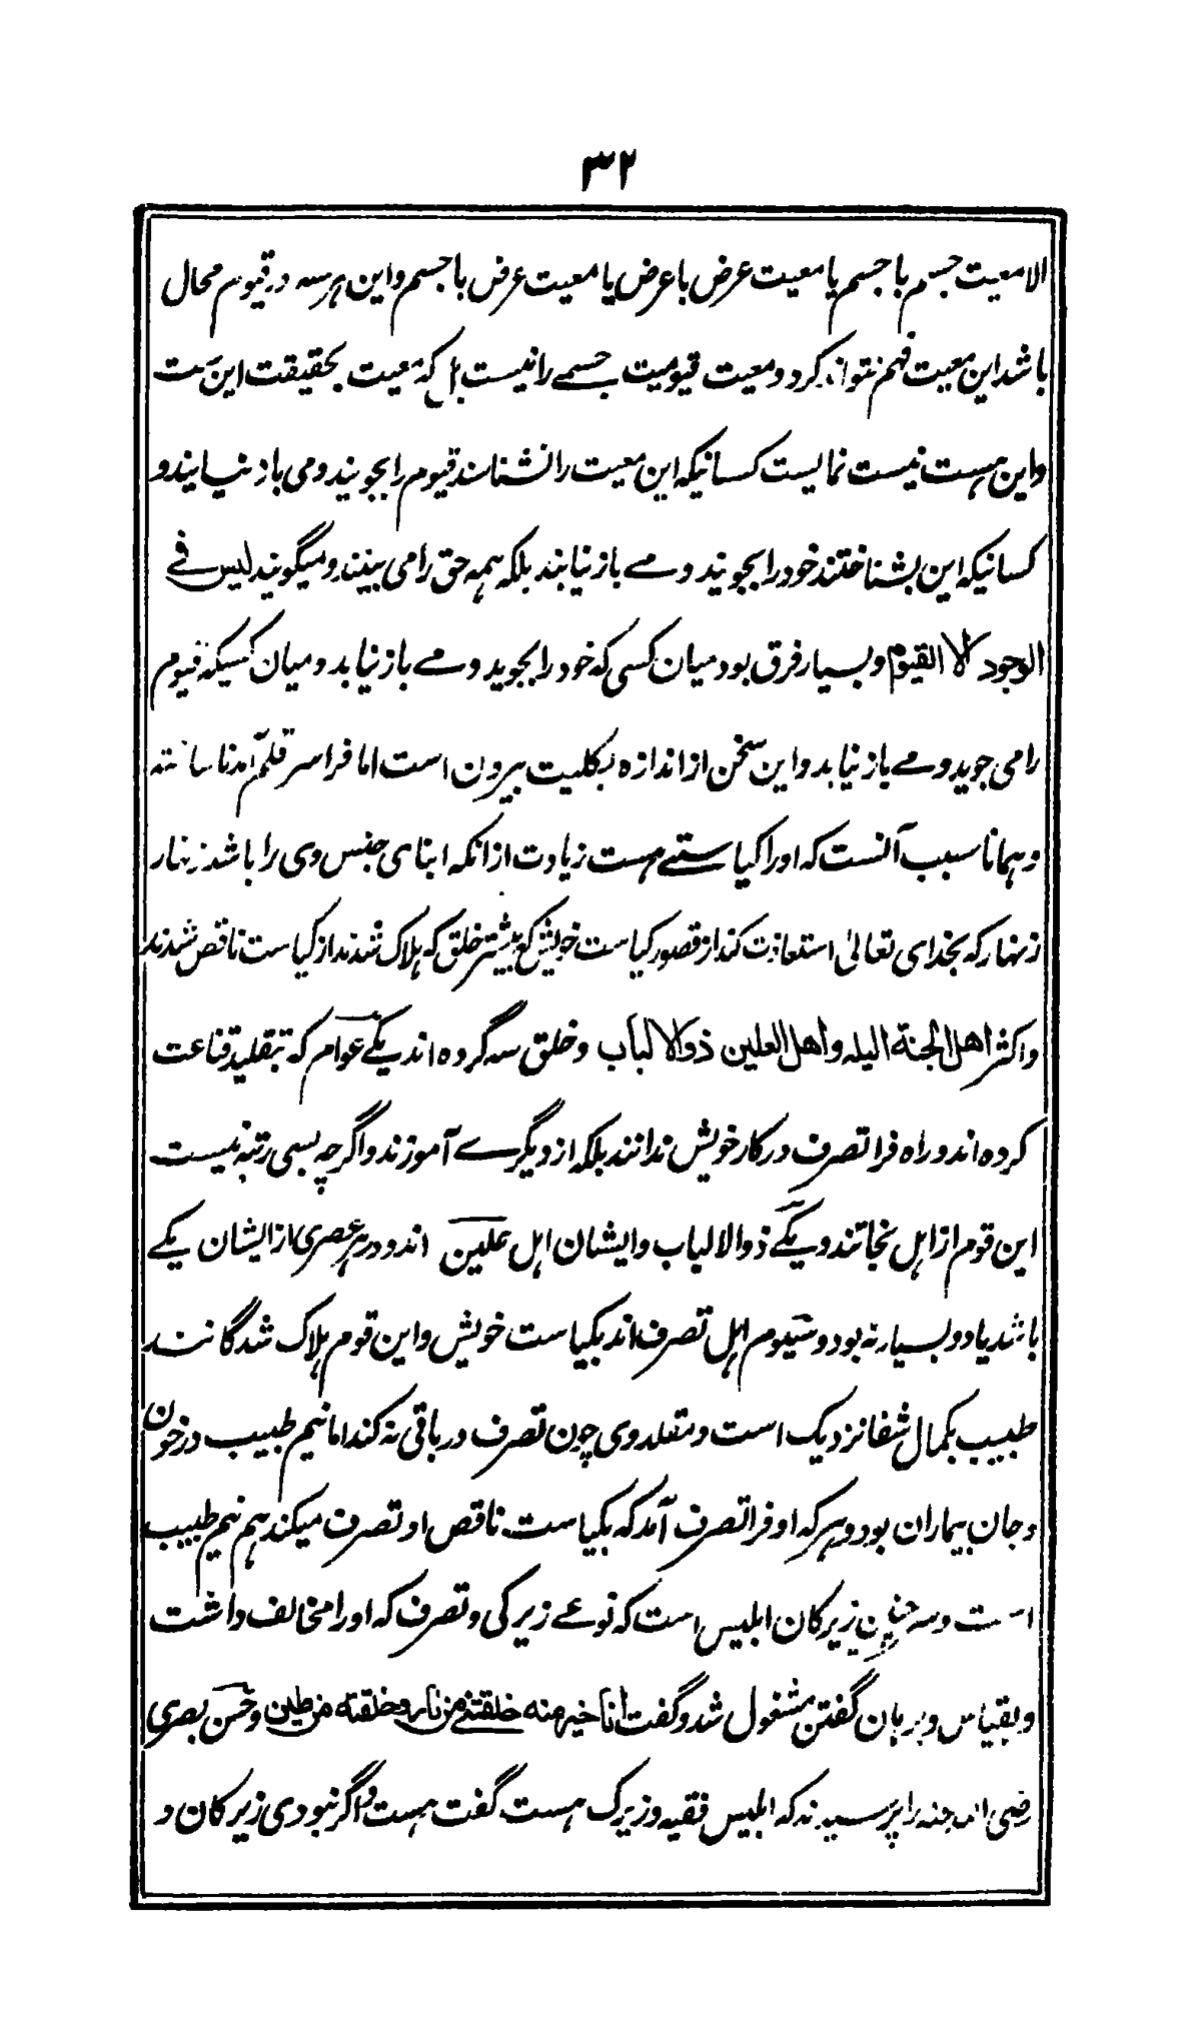 ۳۲
الا معیت جسم با جسم یا معیت عرض با عرض یا معیت عرض با جسم و این هر سه در قیوم محال
باشد این معیت فهم نتواند کرد و معیت قیومیت جسمے را نیست بل که معیت بحقیقت این ست
و این هست نیست نمایست کسانیکه این معیت را نشناسند قیوم را بجویند و می باز نیابند و
کسانیکه این بشناختند خود را بجویند و مے باز نیابند بلکه همه حق را می بینند و میگویند لیس فے
الوجود الا القیوم و بسیار فرق بود میان کسی که خود را بجوید و مے باز نیابد و میان کسیکه قیوم
را می جوید و مے باز نیابد و این سخن از اندازه بکلیت بیرون است اما فرا سر قلم آمد ناساخته
و همانا سبب آنست که او را کیاستے هست زیادت از انکه ابنای جنس وی را باشد زنهار
زنهار که بخدای تعالیٰ استعاذت کند از قصور کیاست خویش که بیشتر خلق که هلاک شدند از کیاست ناقص شدند
و اکثر اهل الجنة البله و اهل العلین ذو الالباب و خلق سه گروه اند یکے عوام که بتقلید قناعت
کرده اند و راه فرا تصرف در کار خویش ندانند بلکه از دیگرے آموزند و اگر چه بسی رتبه نیست
این قوم از اهل نجاتند و یکے ذوالالباب و ایشان اهل علیین اند و در هر عصری از ایشان یکے
باشد یا دو بسیار نه بود و سیوم اهل تصرف اند بکیاست خویش و این قوم هلاک شدگانند
طبیب بکمال شفا نزدیک است و مقلد وی چون تصرف در باقی نه کند اما نیم طبیب در خون
و جان بیماران بود و هر که او فرا تصرف آمد که بکیاست ناقص او تصرف میکند هم نیم طبیب
است و سر چنین زیرکان ابلیس است که نوعے زیرکی و تصرف که او را مخالف داشت
و بقیاس و برهان گفتن مشغول شد و گفت انا خیر منه خلقتنی من نار و خلقته من طین و حسن بصری
رضی الله عنه را پرسیدند که ابلیس فقیه و زیرک هست گفت هست و اگر نبودی زیرکان و